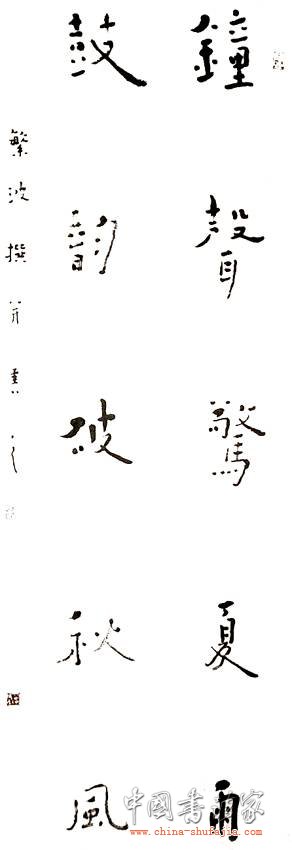 鐘聲驚夏雨
鼓韵破秋風
繁波撰并書之
中國书法家
www.china-shufajia.com